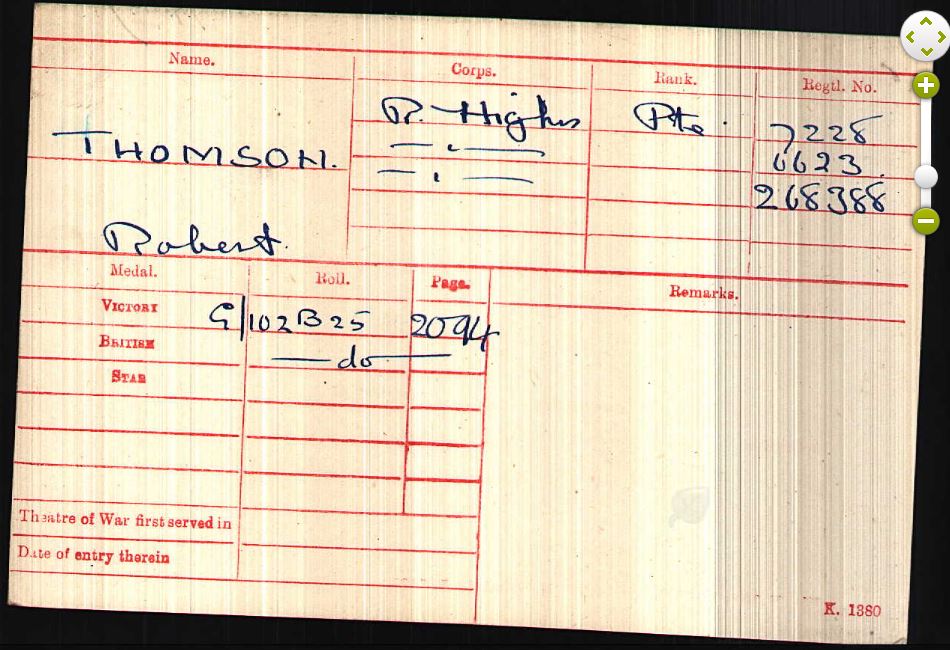 Name. Corps. Rank. Regtl. No.
THOMSON. R. Highrs Pte. 7228
— " — 6623.
— " — 268388
Robert.
Medal. Roll. Page. Remarks.
VICTORY G/102B25 2094
BRITISH — do —
STAR
Theatre of War first served in
Date of entry therein
K. 1380